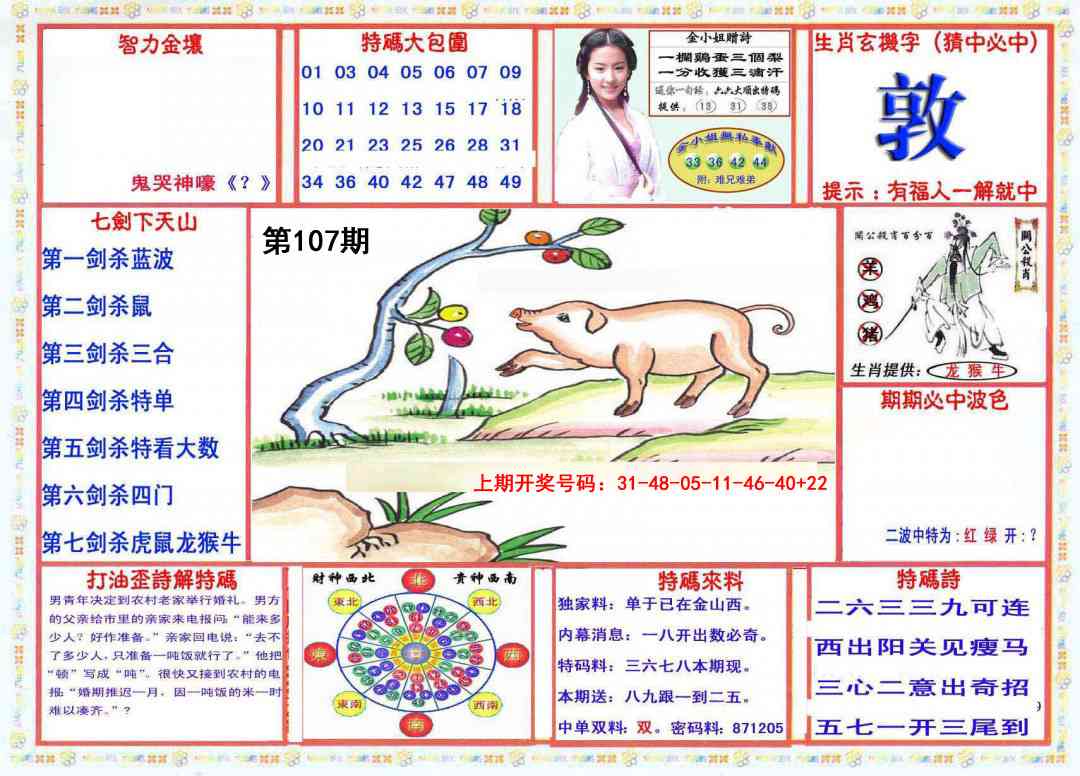 智力金壤
鬼哭神嚎《？》
特碼大包圍
01 03 04 05 06 07 09
10 11 12 13 15 17 18
20 21 23 25 26 28 31
34 36 40 42 47 48 49
金小姐赠詩
一欄鷄蛋三個梨
一分收獲三滴汗
送你一句話：六六大順出特碼
提供：13 31 38
金小姐無私奉獻
33 36 42 44
附：难兄难弟
生肖玄機字（猜中必中）
敦
提示：有福人一解就中
七劍下天山
第一剑杀蓝波
第二剑杀鼠
第三剑杀三合
第四剑杀特单
第五剑杀特看大数
第六剑杀四门
第七剑杀虎鼠龙猴牛
第107期
上期开奖号码：31-48-05-11-46-40+22
関公殺肖百分百
關公殺肖
羊
鸡
猪
生肖提供：龙 猴 牛
期期必中波色
二波中特为：红 绿 开：？
打油歪詩解特碼
男青年决定到农村老家举行婚礼。男方
的父亲给市里的亲家来电报问：“能来多
少人？好作准备。”亲家回电说：“去不
了多少人，只准备一吨饭就行了。”他把
“顿”写成“吨”。很快又接到农村的电
报：“婚期推迟一月，因一吨饭的米一时
难以凑齐。”？
財神西北
貴神西南
北
東北
西北
東
西
東南
西南
南
特碼來料
独家料：单于已在金山西。
内幕消息：一八开出数必奇。
特码料：三六七八本期现。
本期送：八九跟一到二五。
中单双料：双。密码料：871205
特碼詩
二六三三九可连
西出阳关见瘦马
三心二意出奇招
9
五七一开三尾到